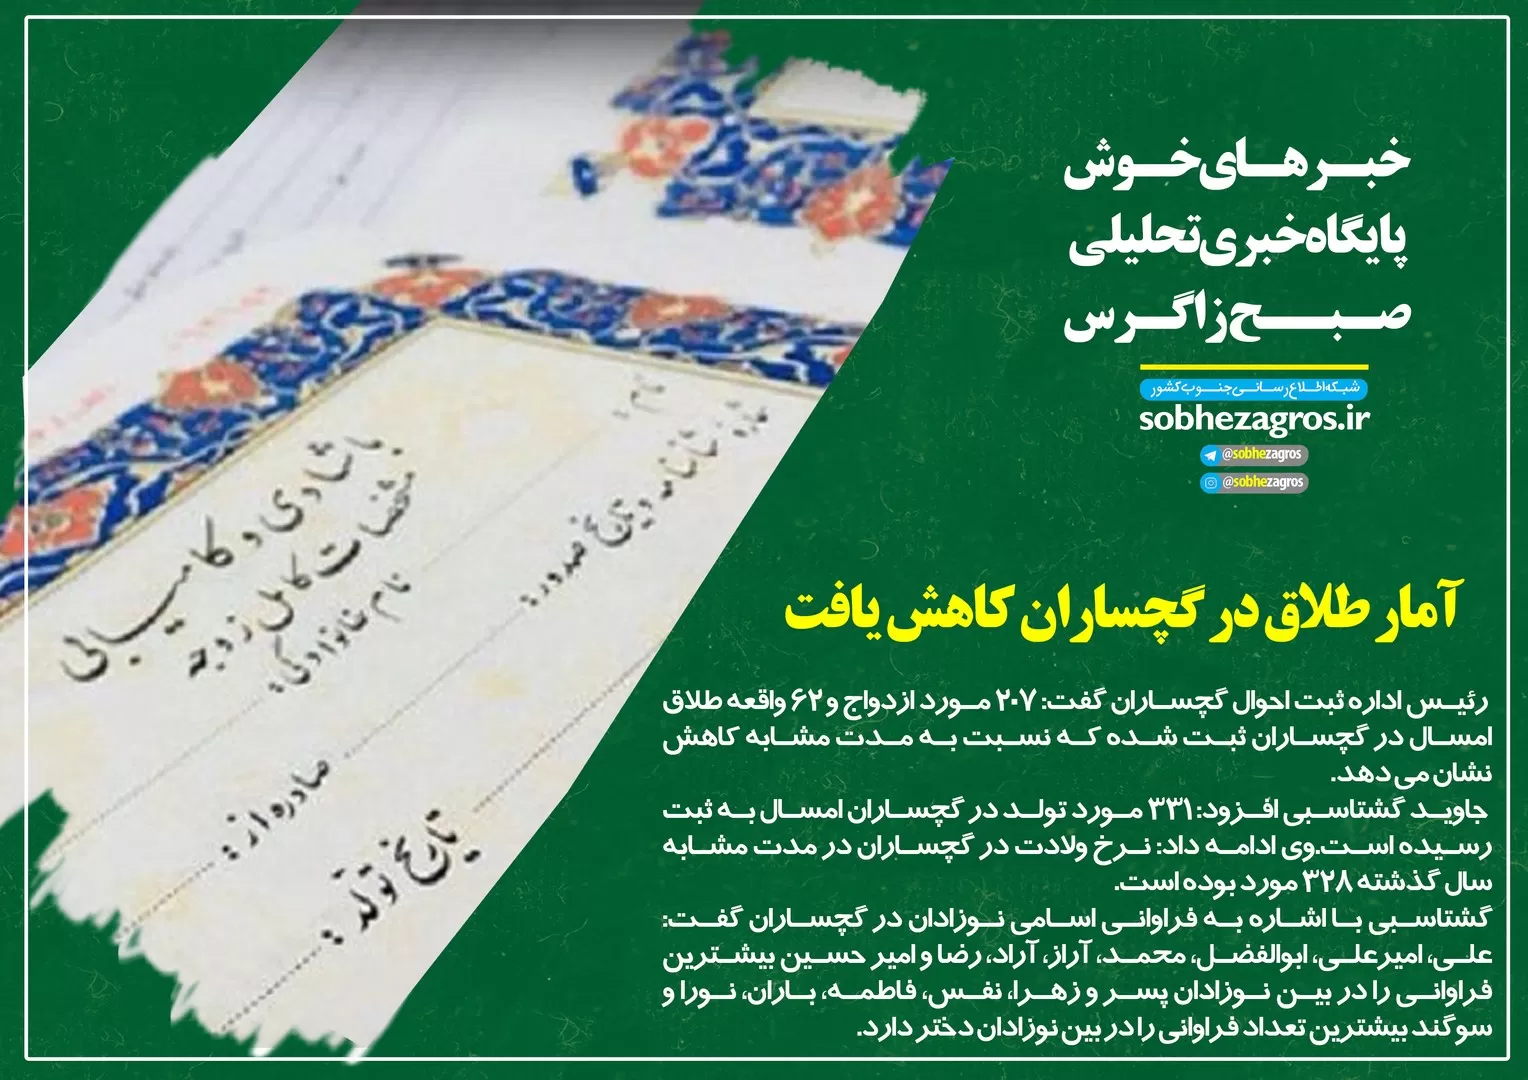 خبرهای‌خوش
پایگاه‌خبری‌تحلیلی
صبح‌زاگرس
شبکه‌اطلاع‌رسانی‌جنوب‌کشور
sobhezagros.ir
@sobhezagros
@sobhezagros
آمار طلاق در گچساران کاهش یافت
رئیس اداره ثبت احوال گچساران گفت: ۲۰۷ مورد ازدواج و ۶۲ واقعه طلاق
امسال در گچساران ثبت شده که نسبت به مدت مشابه کاهش
نشان می دهد.
جاوید گشتاسبی افزود: ۳۳۱ مورد تولد در گچساران امسال به ثبت
رسیده است.وی ادامه داد: نرخ ولادت در گچساران در مدت مشابه
سال گذشته ۳۲۸ مورد بوده است.
گشتاسبی با اشاره به فراوانی اسامی نوزادان در گچساران گفت:
علی، امیرعلی، ابوالفضل، محمد، آراز، آراد، رضا و امیر حسین بیشترین
فراوانی را در بین نوزادان پسر و زهرا، نفس، فاطمه، باران، نورا و
سوگند بیشترین تعداد فراوانی را در بین نوزادان دختر دارد.
با شادی و کامیابی
مشخصات کامل زوجه
نام :
نام خانوادگی:
شماره شناسنامه و تاریخ صدور:
صادره از :
تاریخ تولد :